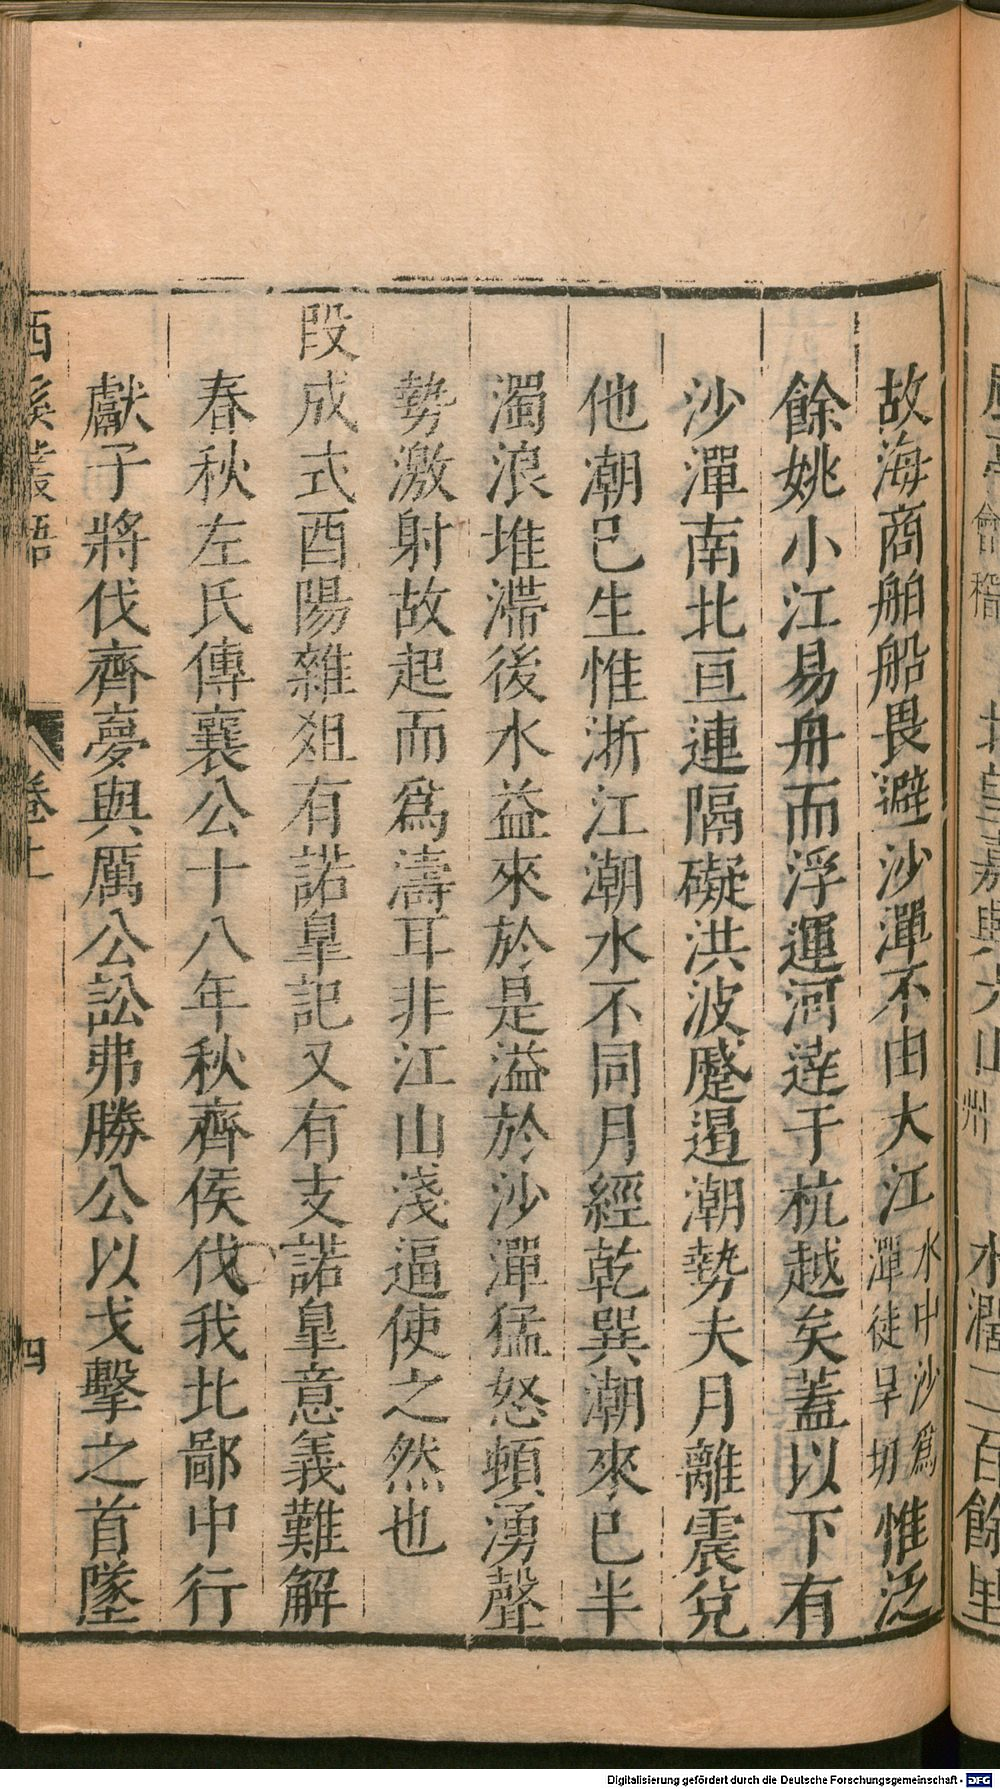 故海商舶船畏避沙潬不由大江水中沙爲潬徒旱切惟泛
餘姚小江易舟而浮運河達于杭越矣蓋以下有
沙潬南北亘連隔礙洪波蹙遏潮勢夫月離震兌
他潮已生惟浙江潮水不同月經乾巽潮來已半
濁浪堆滯後水益來於是溢於沙潬猛怒頓湧聲
勢激射故起而爲濤耳非江山淺逼使之然也
段成式酉陽雜俎有諾臯記又有支諾臯意義難解
春秋左氏傳襄公十八年秋齊侯伐我北鄙中行
獻子將伐齊夢與厲公訟弗勝公以戈擊之首墜
西溪叢語 卷上 四
水濶二百餘里
Digitalisierung gefördert durch die Deutsche Forschungsgemeinschaft - DFG